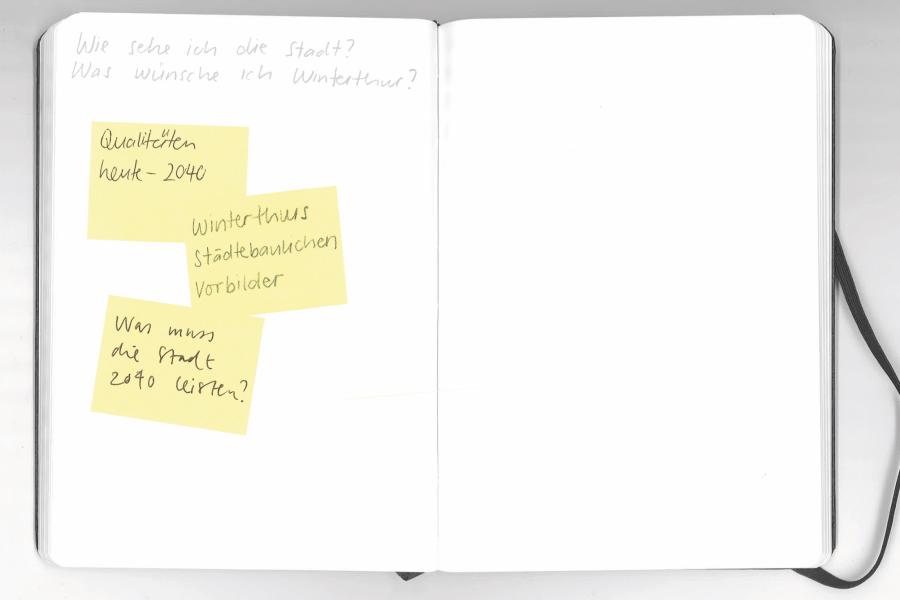 Wie sehe ich die Stadt?
Was wünsche ich Winterthur?
Qualitäten
heute – 2040
Winterthurs
städtebaulichen
Vorbilder
Was muss
die Stadt
2040 leisten?